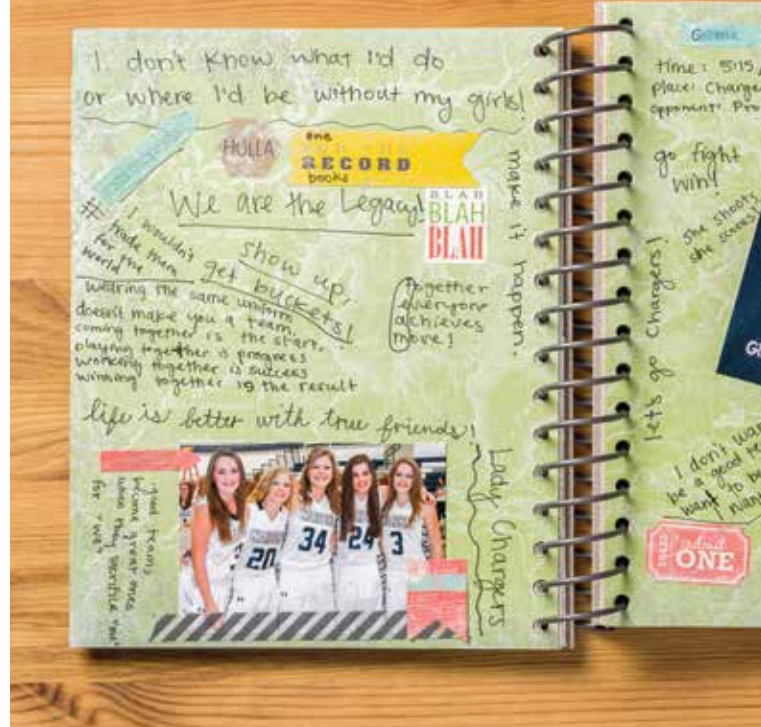 I don't know what I'd do
or where I'd be without my girls!
HOLLA
one
RECORD
books
We are the Legacy!
BLAH
BLAH
BLAH
make it happen.
# I wouldn't
trade them
for the
world
show up,
get buckets!
together
everyone
achieves
more!
wearing the same uniform
doesn't make you a team.
coming together is the start.
playing together is progress
working together is success
winning together is the result
life is better with true friends!
good teams
become great ones
when they sacrifice "me"
for "we"
20
34
24
3
Lady Chargers
time: 5:15
place: Charge
opponent: Pro
go fight
win!
she shoots
she scores
let's go Chargers!
I don't wan
be a good te
want to be
admit
ONE